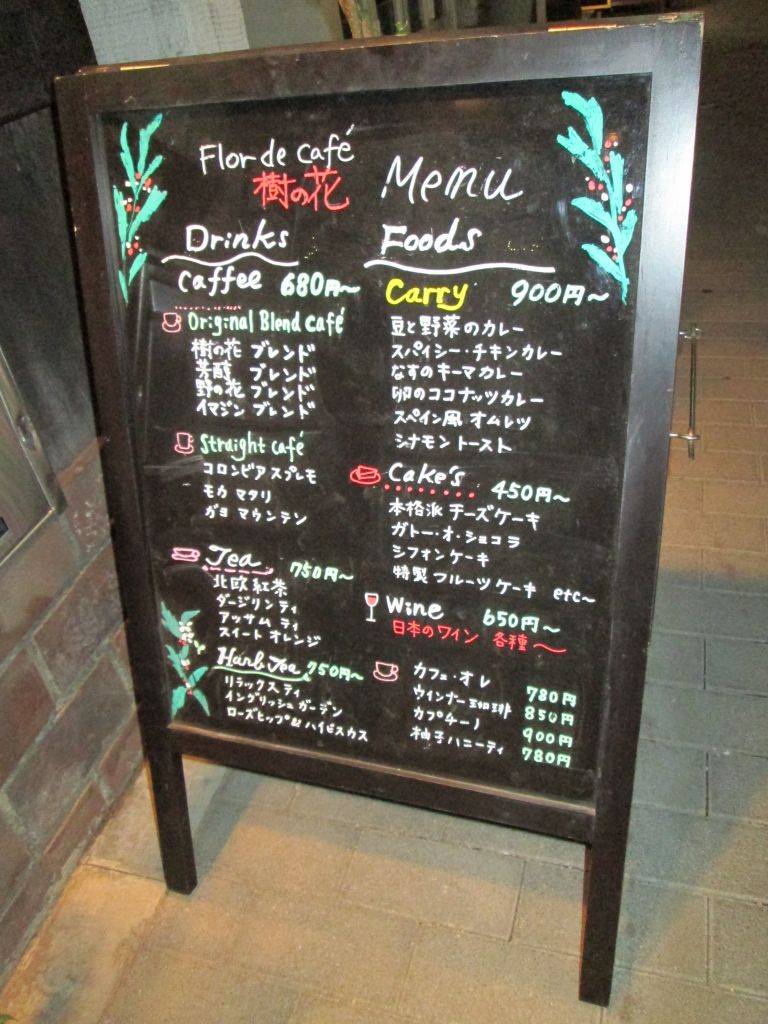 Flor de Café
樹の花
Menu
Drinks
Caffee 680円~
Original Blend Café
樹の花 ブレンド
芳醇 ブレンド
野の花 ブレンド
イマジン ブレンド
Straight café
コロンビア スプレモ
モカ マタリ
ガヨ マウンテン
Tea 750円~
北欧紅茶
ダージリン ティ
アッサム ティ
スイート オレンジ
Harb Tea 750円~
リラックス ティ
イングリッシュ ガーデン
ローズヒップ&ハイビスカス
Foods
Carry 900円~
豆と野菜のカレー
スパイシー・チキンカレー
なすのキーマカレー
卵のココナッツカレー
スペイン風 オムレツ
シナモントースト
Cake's 450円~
本格派 チーズケーキ
ガトー・オ・ショコラ
シフォンケーキ
特製 フルーツケーキ etc~
Wine 650円~
日本のワイン 各種~
カフェ・オレ 780円
ウインナー珈琲 850円
カプチーノ 900円
柚子ハニーティ 780円